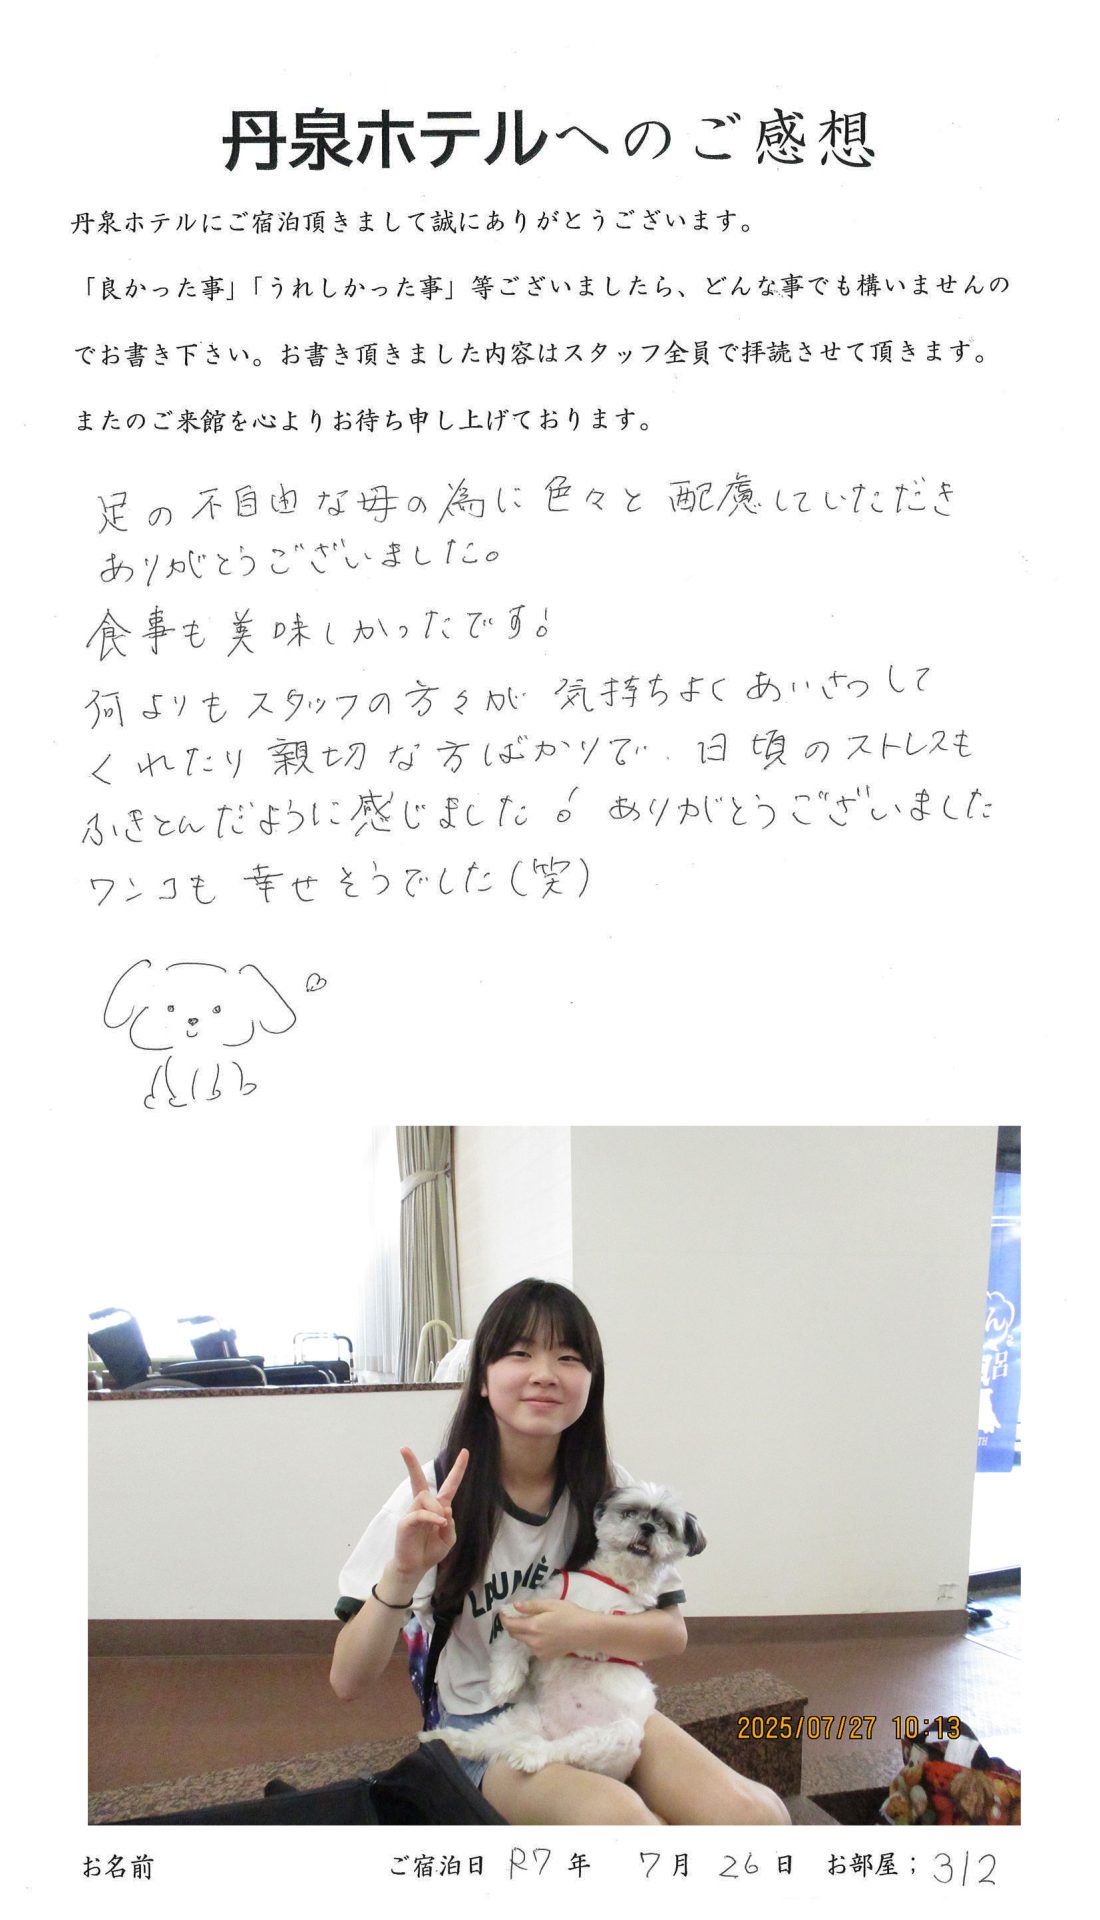 丹泉ホテルへのご感想
丹泉ホテルにご宿泊頂きまして誠にありがとうございます。
「良かった事」「うれしかった事」等ございましたら、どんな事でも構いませんの
でお書き下さい。お書き頂きました内容はスタッフ全員で拝読させて頂きます。
またのご来館を心よりお待ち申し上げております。
足の不自由な母の為に色々と配慮していただき
ありがとうございました。
食事も美味しかったです!
何よりもスタッフの方々が気持ちよくあいさつして
くれたり親切な方ばかりで、日頃のストレスも
ふきとんだように感じました! ありがとうございました
ワンコも幸せそうでした(笑)
ん
呂
2025/07/27 10:13
お名前 ご宿泊日 R7年 7月 26日 お部屋; 312